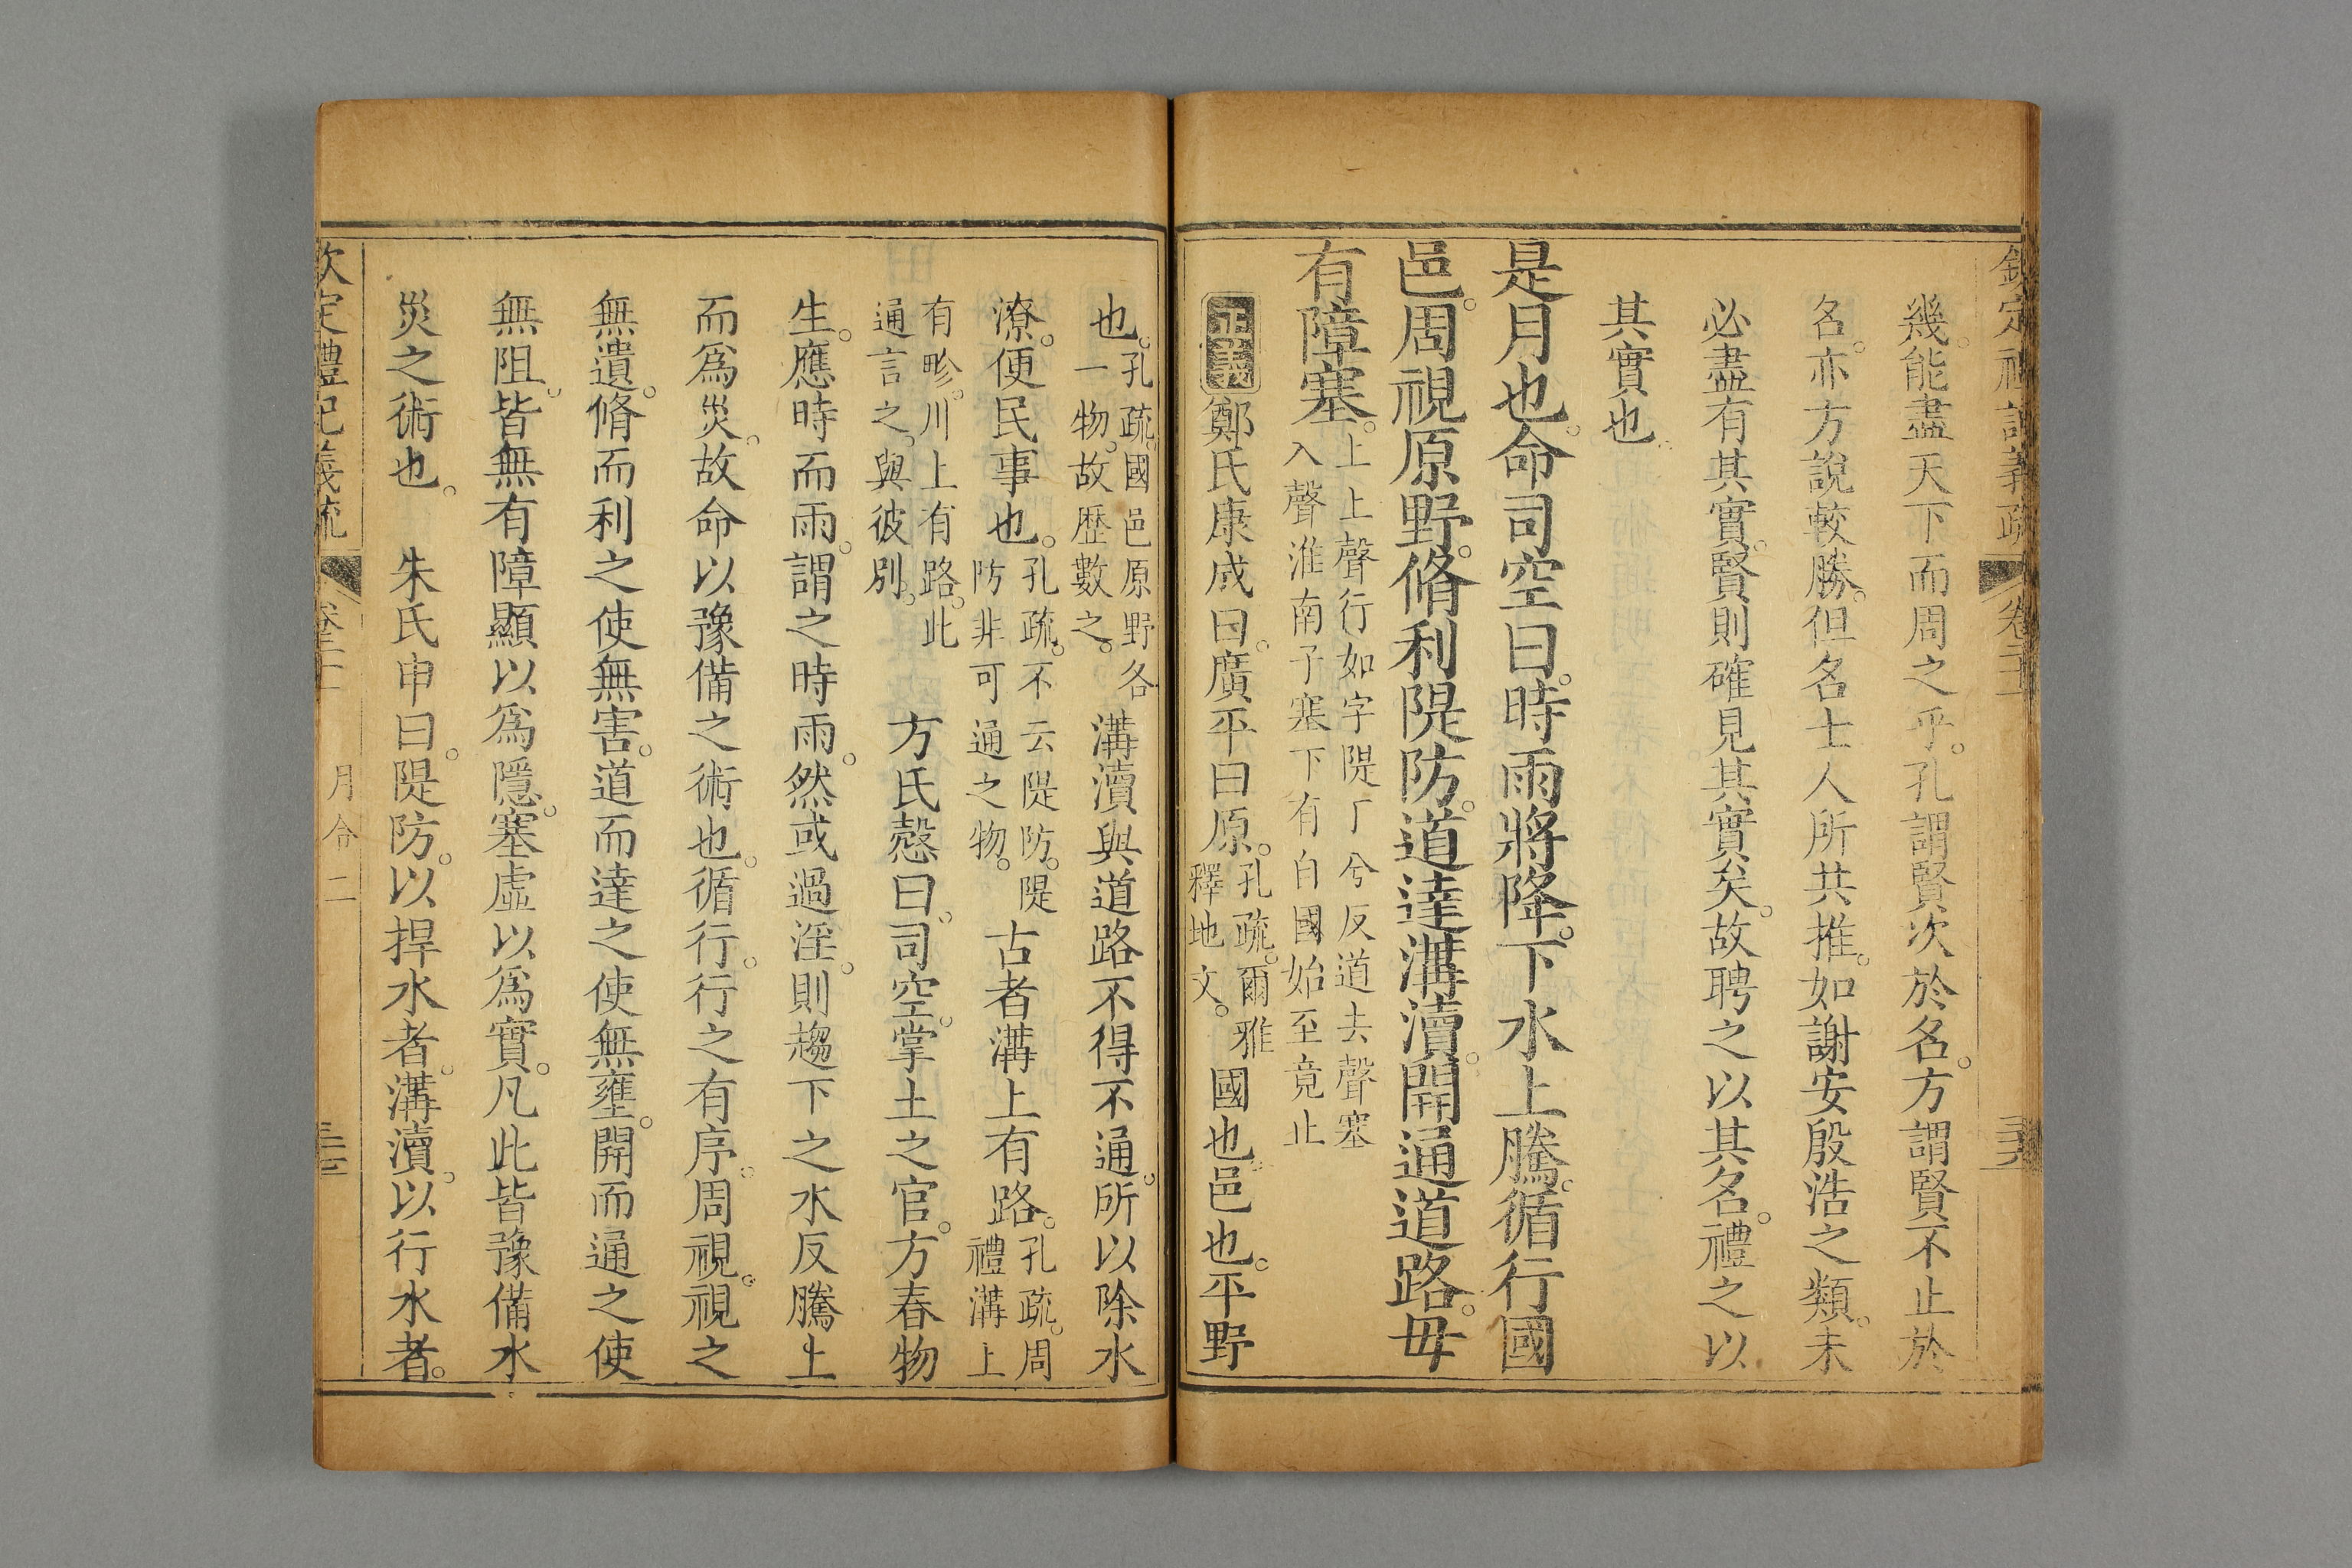 欽定禮記義疏 卷二十一
幾。能盡天下而周之乎。孔謂賢次於名。方謂賢不止於
名。亦方說較勝。但名士人所共推。如謝安殷浩之類。未
必盡有其實。賢則確見其實矣。故聘之以其名。禮之以
其實也。
是月也。命司空曰。時雨將降。下水上騰。循行國
邑。周視原野。脩利隄防。道達溝瀆。開通道路。毋
有障塞。上上聲行如字隄丁兮反道去聲塞
入聲淮南子塞下有自國始至竟止
正義鄭氏康成曰。廣平曰原。孔疏。爾雅
釋地文。國也。邑也。平野
也。孔疏。國邑原野各
一物。故歷數之。溝瀆與道路不得不通。所以除水
潦。便民事也。孔疏。不云隄防。隄
防非可通之物。古者溝上有路。孔疏。周
禮溝上
有畛。川上有路。此
通言之。與彼別。方氏慤曰。司空。掌土之官。方春物
生。應時而雨。謂之時雨。然或過淫。則趨下之水反騰上
而爲災。故命以豫備之術也。循行。行之有序。周視。視之
無遺。脩而利之使無害。道而達之使無壅。開而通之使
無阻。皆無有障顯以爲隱。塞虛以爲實。凡此皆豫備水
災之術也。 朱氏申曰。隄防。以捍水者。溝瀆。以行水者。
欽定禮記義疏 月令二